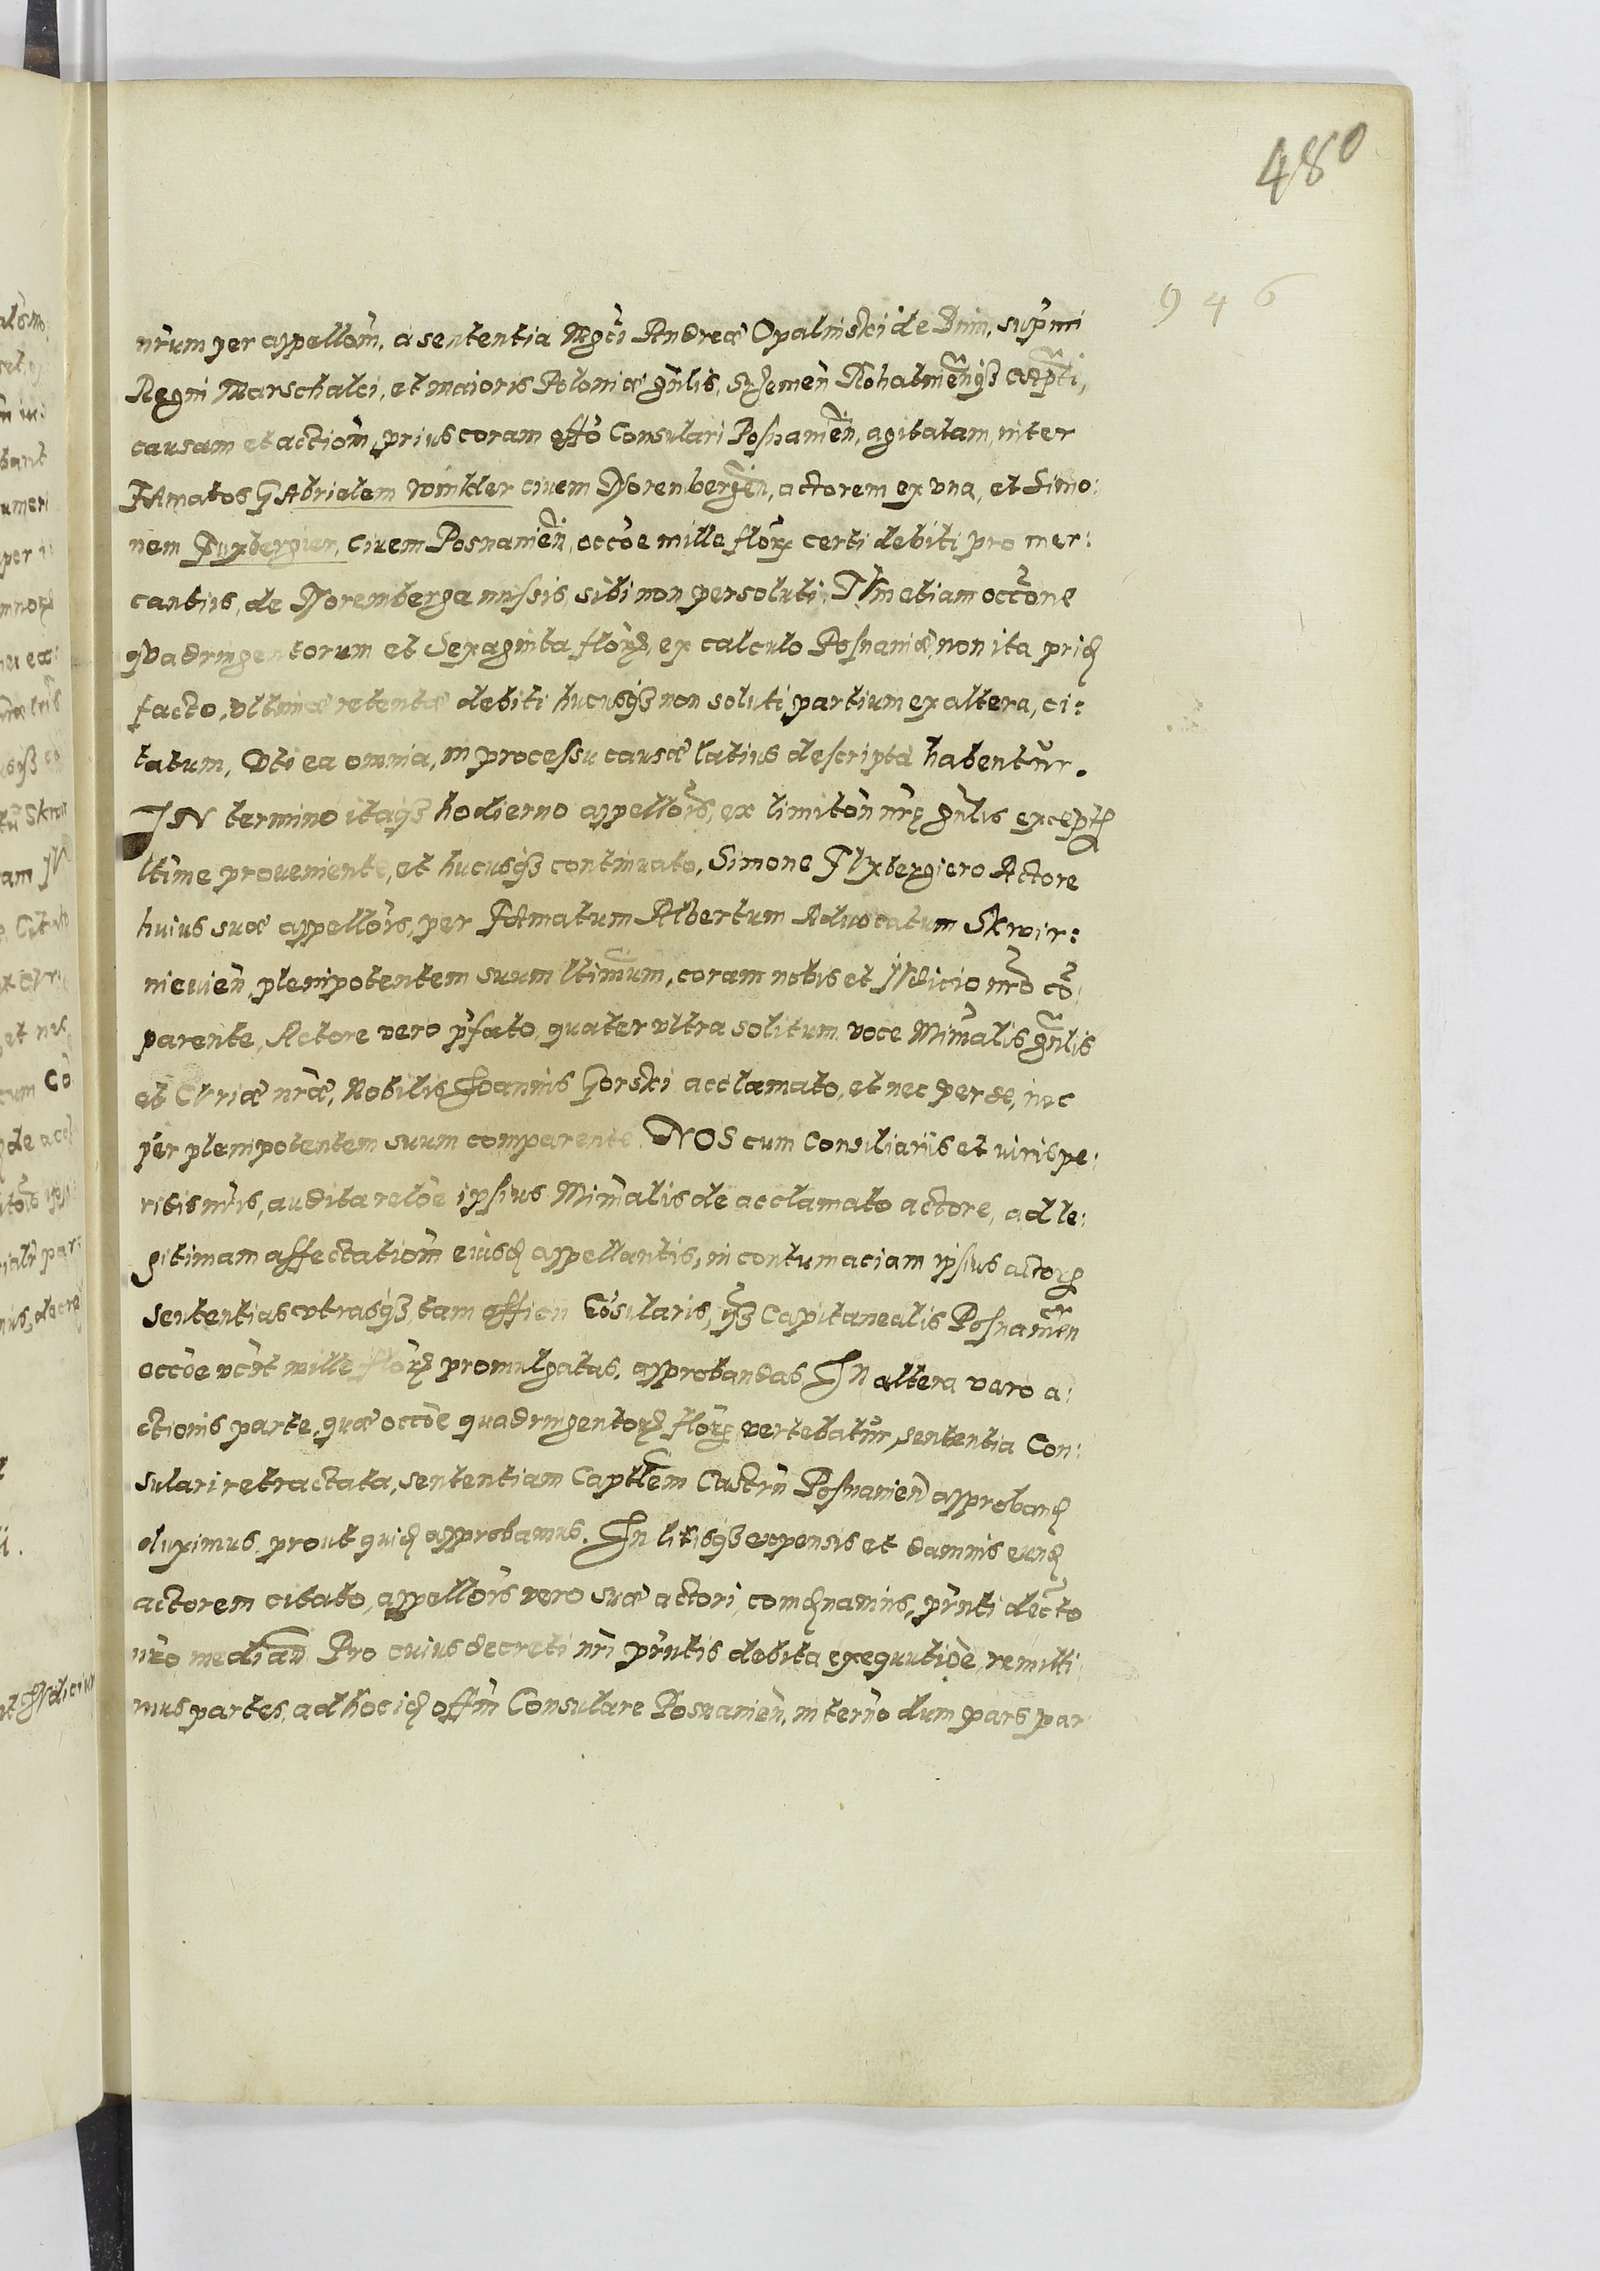 480
946
nr̃um per appellõm, a sententia Mgc̃i Andreæ Opalinski de Bnin, sup̃mi
Regni Marschalci, et maioris Poloniæ gñlis, Szremeñ Rohatineñqȝ Capti,
causam et actiom̃, prius coram offõ Consulari Posnanieñ, agitatam, inter
FAmatos GAbrielem Winkler ciuem Norenbergeñ, actorem ex vna, et Simo:
nem Fuxbergier, Ciuem Posnanieñ, occõe mille florꝝ certi debiti pro mer:
cantiis, de Noremberga missis, sibi non persoluti, TVm etiam occõne
qVadringentorum et Sexaginta florꝝ, ex calculo Posnaniæ, non ita prid
facto, vltimæ retentæ debiti hucusqȝ non soluti, partium ex altera, ci:
tatum, Vti ea omnia, in processu causæ latius descripta habentur.
IN termino itaqȝ hodierno appellõis, ex limitõn nr̃ȩ gñlis except
ltime proueniente, et hucusqȝ continuato, Simone FVxbergiero Actore
huius suæ appellõis, per FAmatum Albertum Aduocatum Skwir:
niewieñ, plenipotentem suum ltimum, coram nobis et JVdicio nr̃o cõ:
parente, Actore vero p̃fato, quater vltra solitum voce Minr̃alis gñlis
et CVriæ nr̃æ, Nobilis Joannis Gorski acclamato, et nec per se, nec
per plenipotentem suum comparente. NOS cum Consiliariis et viris pe:
ritis nr̃is, audita relõe ipsius Minr̃alis de acclamato actore, ad le:
gitimam affectatiom̃ eiusd appellantis, in contumaciam ipsius actorꝝ
sententias vtrasqȝ, tam officii Cõsularis, qȝ Capitanealis Posnanieñ
occõe vcȝt mille florꝝ promulgatas, approbandas, In altera vero a:
ctionis parte, quæ occõe quadringentorꝝ florꝝ vertebatur, sententia Con:
sulari retractata, sententiam Captlem Castrñ Posnanieñ approband
duximus, prout quid approbamus. In litisqȝ expensis et damnis eund
actorem citato, appellõis vero suæ actori, comdnamus, prñti dec̃to
nr̃o median̄ Pro cuius decreti nr̃i prñtis debita exequutiõe, remitti
mus partes, ad hoc id offm̃ Consulare Posnanieñ, in ter̃no dum pars par